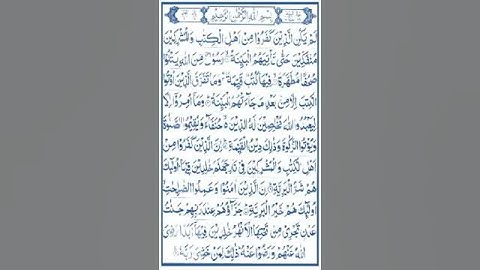 بِسْمِ اللهِ الرَّحْمٰنِ الرَّحِيْمِ
لَمْ يَكُنِ الَّذِيْنَ كَفَرُوْا مِنْ اَهْلِ الْكِتٰبِ وَالْمُشْرِكِيْنَ
مُنْفَكِّيْنَ حَتّٰى تَاْتِيَهُمُ الْبَيِّنَةُ رَسُوْلٌ مِّنَ اللهِ يَتْلُوْا
صُحُفًا مُّطَهَّرَةً فِيْهَا كُتُبٌ قَيِّمَةٌ وَمَا تَفَرَّقَ الَّذِيْنَ اُوْتُوا
الْكِتٰبَ اِلَّا مِنْ بَعْدِ مَا جَآءَتْهُمُ الْبَيِّنَةُ وَمَآ اُمِرُوْٓا اِلَّا
لِيَعْبُدُوا اللهَ مُخْلِصِيْنَ لَهُ الدِّيْنَ حُنَفَآءَ وَيُقِيْمُوا الصَّلٰوةَ
وَيُؤْتُوا الزَّكٰوةَ وَذٰلِكَ دِيْنُ الْقَيِّمَةِ اِنَّ الَّذِيْنَ كَفَرُوْا مِنْ
اَهْلِ الْكِتٰبِ وَالْمُشْرِكِيْنَ فِيْ نَارِ جَهَنَّمَ خٰلِدِيْنَ فِيْهَا اُولٰٓئِكَ
هُمْ شَرُّ الْبَرِيَّةِ اِنَّ الَّذِيْنَ اٰمَنُوْا وَعَمِلُوا الصّٰلِحٰتِ
اُولٰٓئِكَ هُمْ خَيْرُ الْبَرِيَّةِ جَزَآؤُهُمْ عِنْدَ رَبِّهِمْ جَنّٰتُ
عَدْنٍ تَجْرِيْ مِنْ تَحْتِهَا الْاَنْهٰرُ خٰلِدِيْنَ فِيْهَآ اَبَدًا رَضِيَ
اللهُ عَنْهُمْ وَرَضُوْا عَنْهُ ذٰلِكَ لِمَنْ خَشِيَ رَبَّهٗ